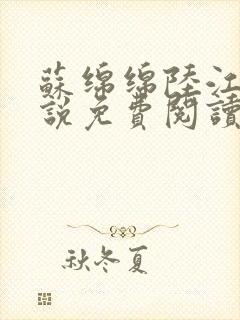 蘇綿綿陸江
說免費閱讀
秋冬夏